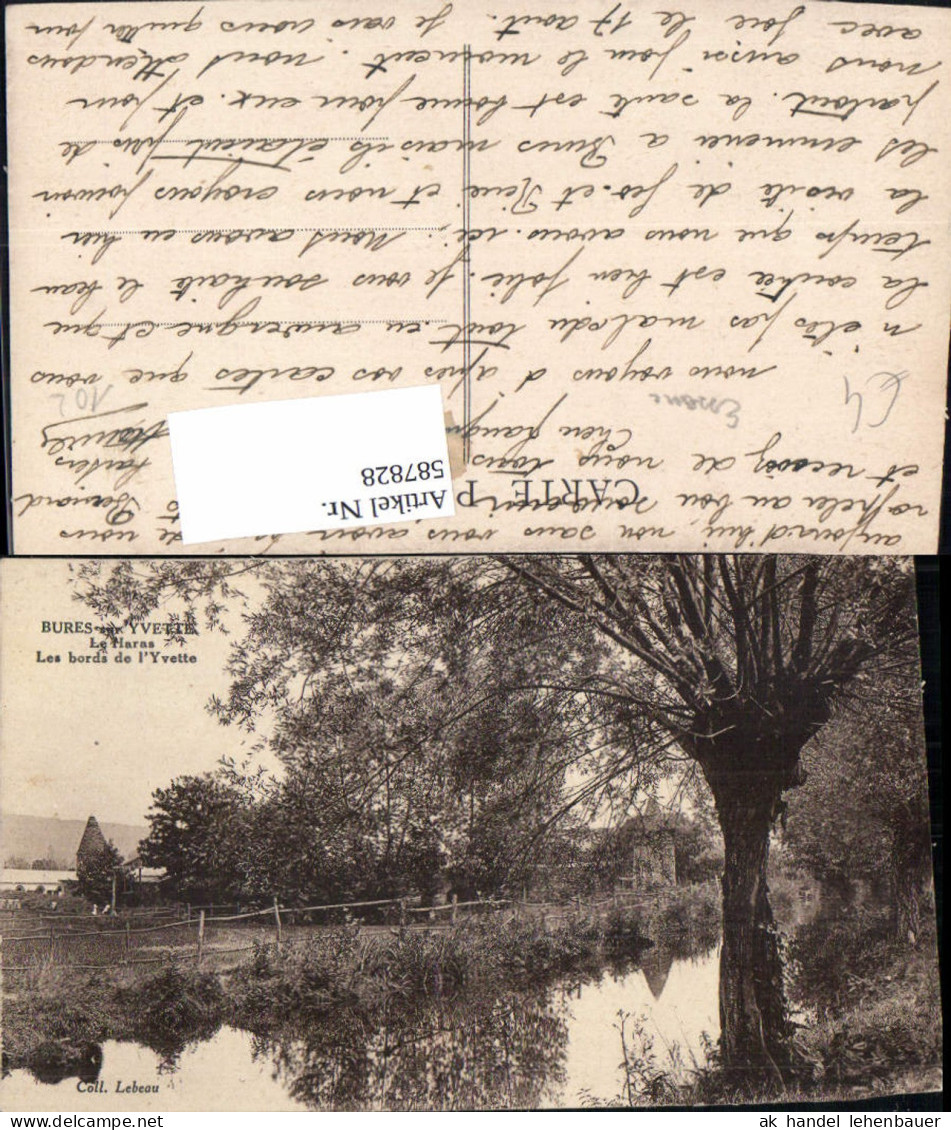 aujourd'hui, non sans vous avoir de nous
rappeler au bon souvenir Bernard
CARTE P
et recevez de nous tous
baisers
Artikel Nr.
587828
Essonne
102
nous voyons d apres vos cartes que vous
n etes pas malade du tout en auvergne et que
la contrée est bien jolie. je vous souhaite le beau
temps que nous avons ici. Nous avons eu hier
la visite de et René et nous croyons pouvoir
les emmener a Bures mais ils étaient pris de
partout. la santé est bonne pour eux et pour
nous aussi pour le moment. nous attendons
avec joie le 17 aout. Je vais vous quitter pour
BURES-sur-YVETTE
Le Haras
Les bords de l'Yvette
Coll. Lebeau
ak handel lehenbauer